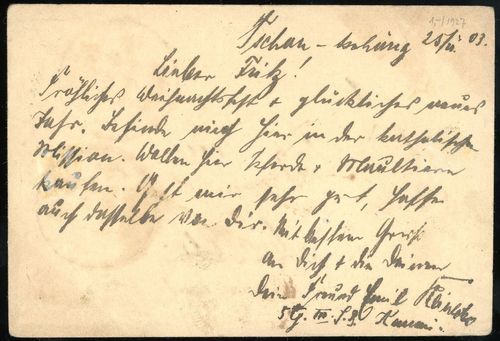 15-/1927
Tschan-behäng 25/II. 03.
Lieber Fritz!
Fröhliches Weihnachtsfest + glückliches neues
Jahr. Befinde mich hier in der katholischen
Mission. Wollen hier Pferde + Maultiere
kaufen. Geht mir sehr gut, hoffe
auch dasselbe von Dir. Mit bestem Gruß
an Dich + die Deinen
Dein Freund Emil